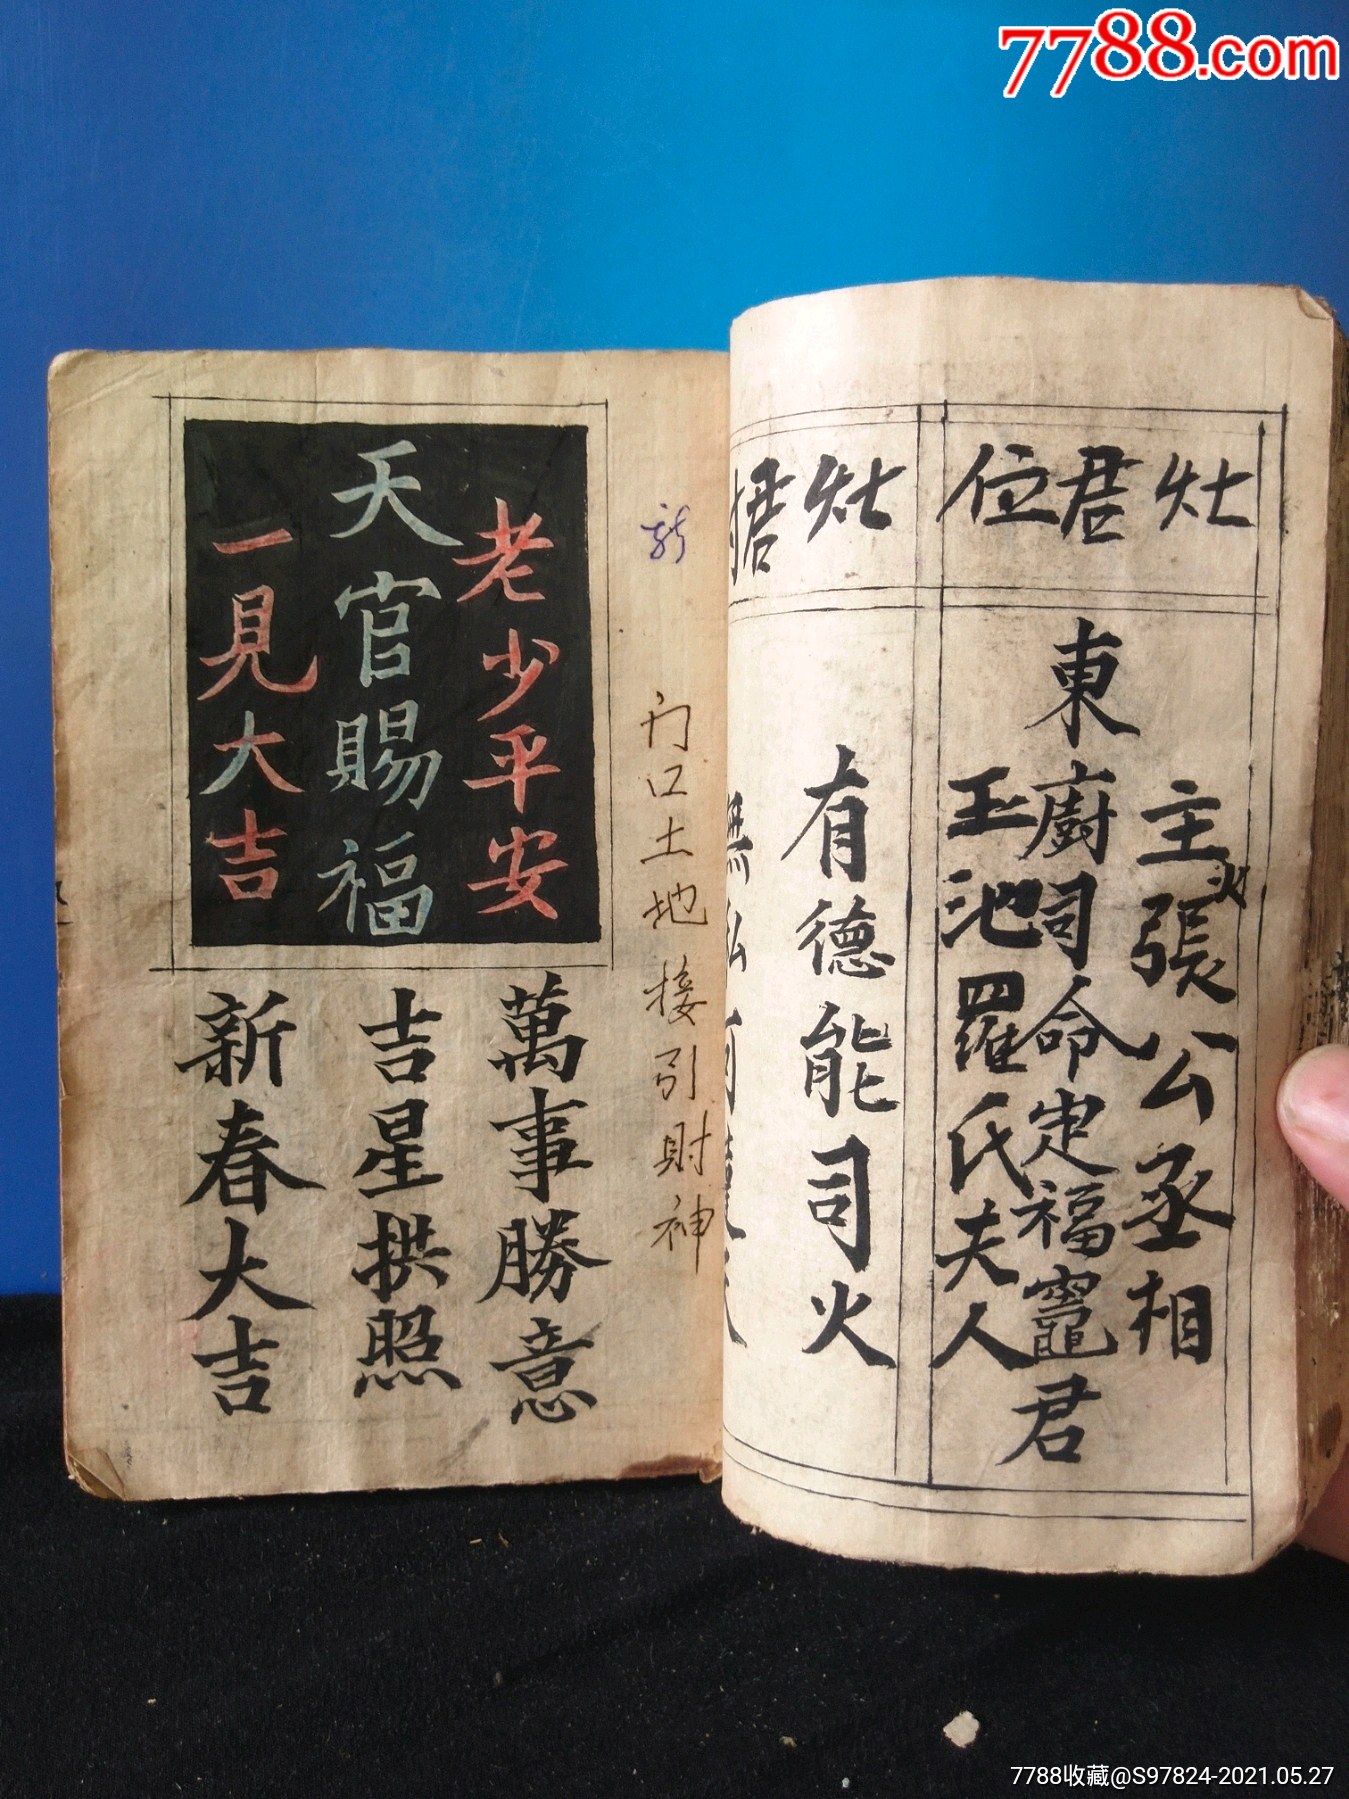 7788.com
灶君位
主張公丞相
火
東廚司命定福竈君
玉池羅氏夫人
灶君
有德能司火
無私可達天
门口土地接引財神
老少平安
天官賜福
一見大吉
萬事勝意
吉星拱照
新春大吉
7788收藏@S97824-2021.05.27